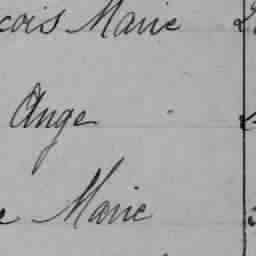 çois Marie
Ange
e Marie